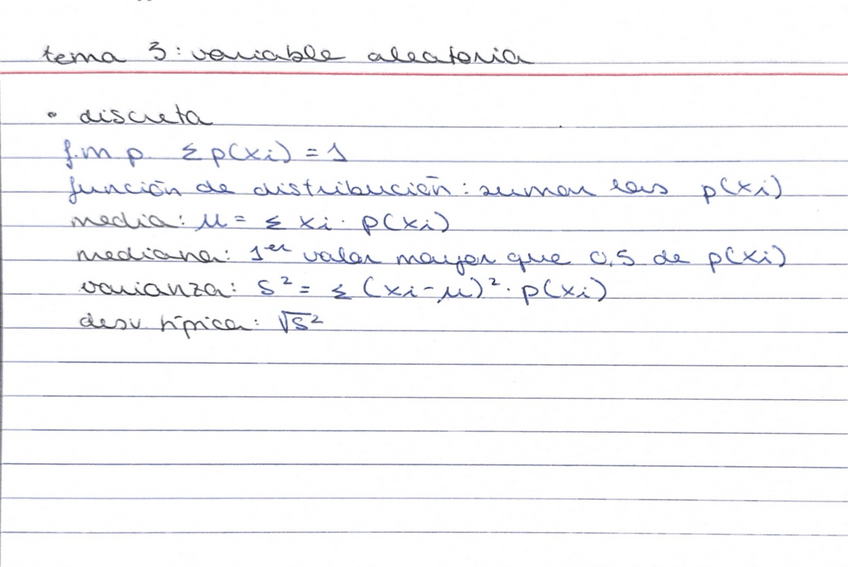 tema 3: variable aleatoria
• discreta
f.m.p. Σ p(xi) = 1
función de distribución: sumar las p(xi)
media: μ = Σ xi · p(xi)
mediana: 1er valor mayor que 0,5 de p(xi)
varianza: S² = Σ (xi-μ)² · p(xi)
desv. típica: √S²